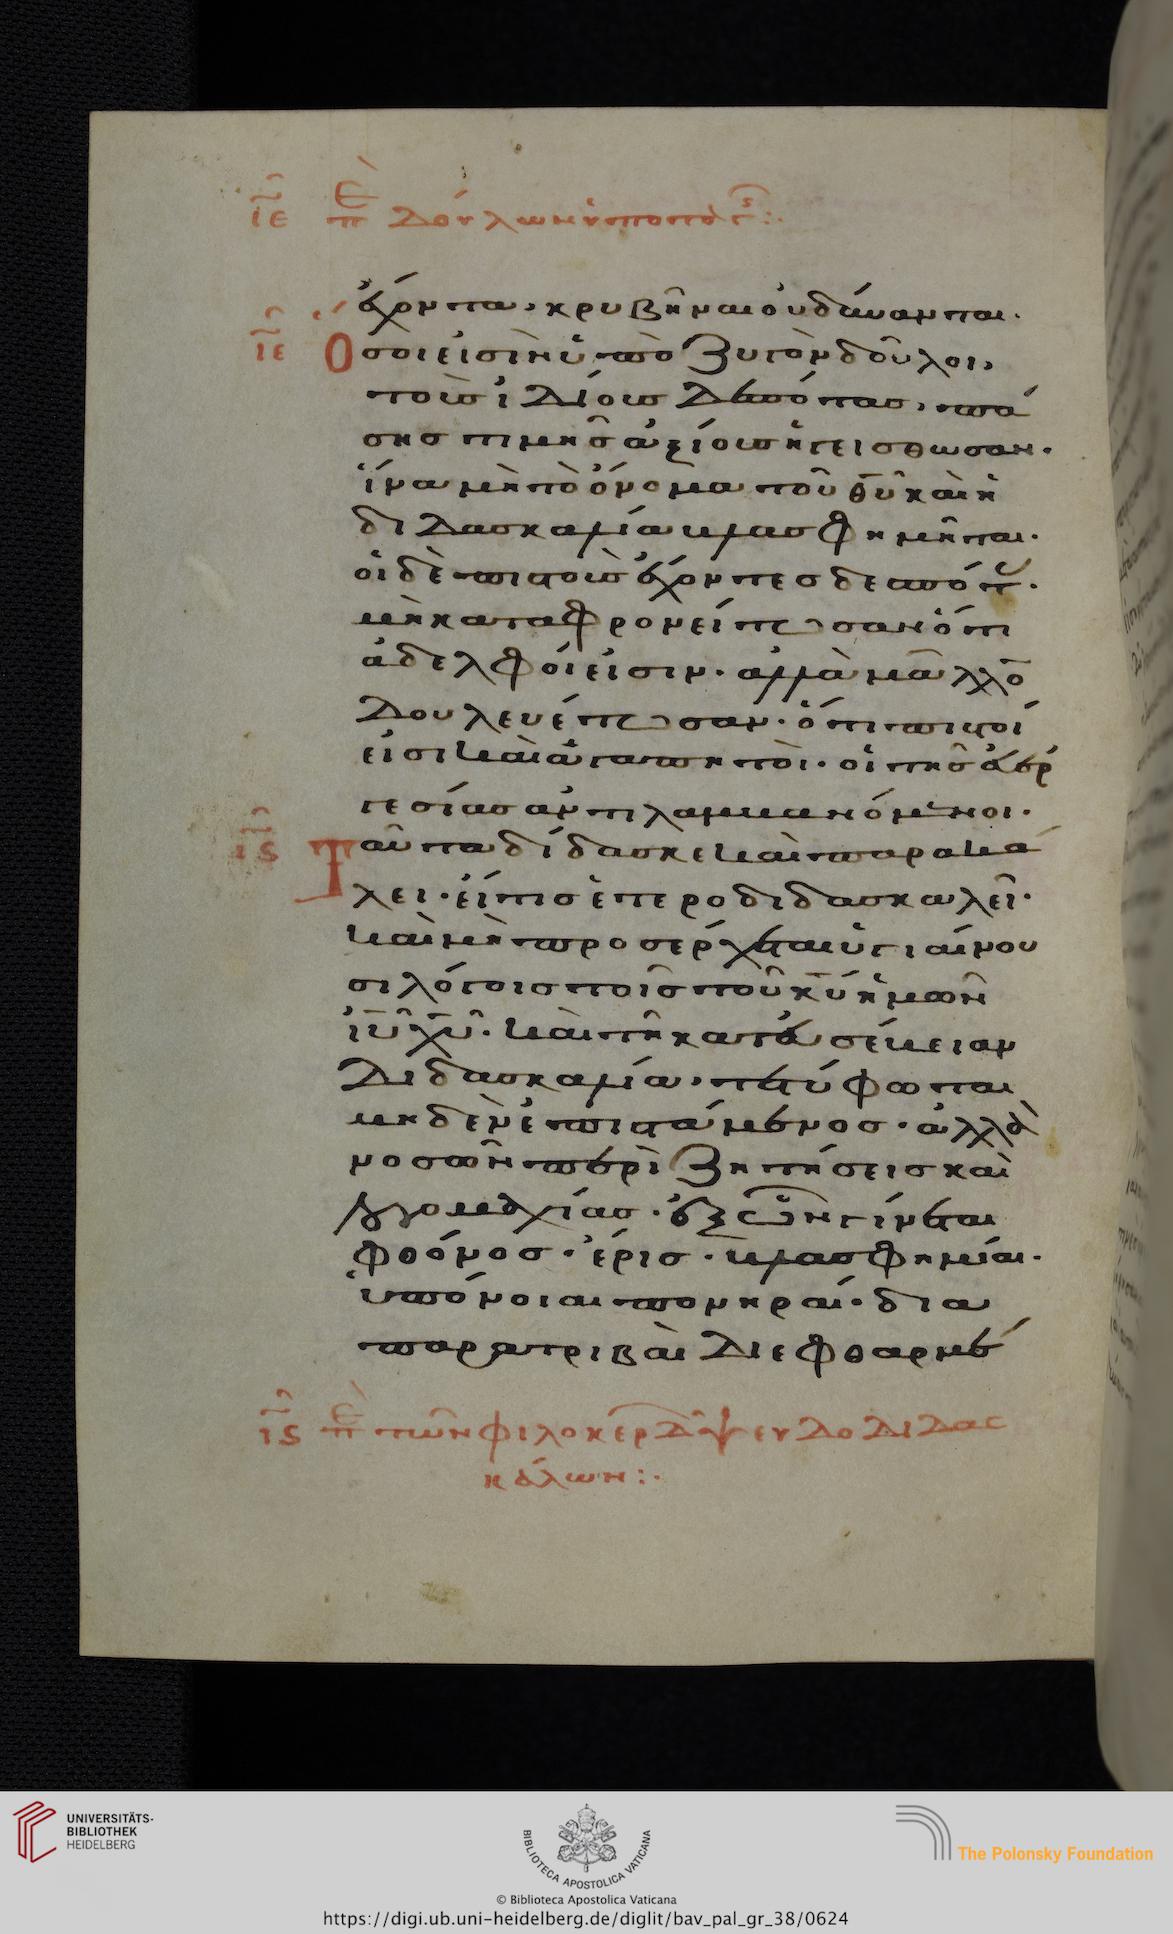 ιε περὶ δούλων ὑποταγῆς:·
ἔχοντα, κρυβῆναι οὐ δύνανται.
ιε Ὅσοι εἰσὶν ὑπὸ ζυγὸν δοῦλοι,
τοὺς ἰδίους δεσπότας, πά
σης τιμῆς ἀξίους ἡγείσθωσαν.
ἵνα μὴ τὸ ὄνομα τοῦ θῦ καὶ ἡ
διδασκαλία βλασφημῆται.
οἱ δὲ πιστοὺς ἔχοντες δεσπότ.
μὴ καταφρονείτωσαν ὅτι
ἀδελφοί εἰσιν. ἀλλὰ μᾶλλο
δουλευέτωσαν. ὅτι πιστοί
εἰσι καὶ ἀγαπητοὶ. οἱ τῆς ἐυερ
γεσίας ἀντιλαμβανόμενοι.
ις Ταῦτα δίδασκε καὶ παρακά
λει. εἴ τις ἑτεροδιδασκαλεῖ.
καὶ μὴ προσέρχεται ὑγιαίνου
σι λόγοις τοῖς τοῦ κῦ ἡμῶν
ἰῦ χῦ. καὶ τῇ κατ' ἐυσέβειαν
διδασκαλία, τετύφωται
μηδὲν ἐπιστάμενος. ἀλλὰ
νοσῶν περὶ ζητήσεις καὶ
λογομαχίας. ἐξ ὧν γίνεται
φθόνος. ἔρις. βλασφημίαι.
ὑπόνοιαι πονηραί. δια
παρατριβαὶ διεφθαρμέ
ις περὶ τῶν φιλοκερδῶν ψευδοδιδασ
κάλων:·
UNIVERSITÄTS-
BIBLIOTHEK
HEIDELBERG
BIBLIOTECA APOSTOLICA VATICANA
The Polonsky Foundation
© Biblioteca Apostolica Vaticana
https://digi.ub.uni-heidelberg.de/diglit/bav_pal_gr_38/0624